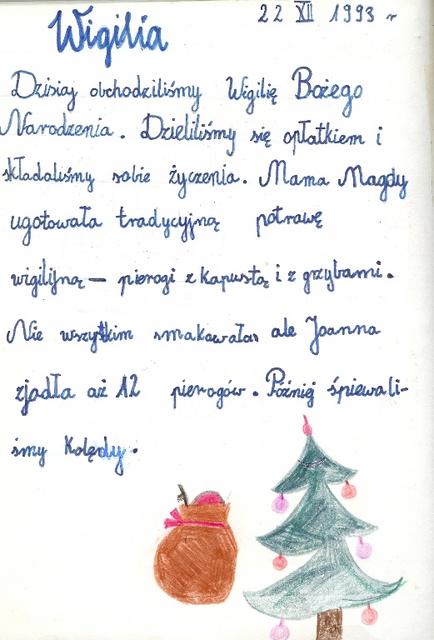 22 XII 1993 r
Wigilia
Dzisiaj obchodziliśmy Wigilię Bożego
Narodzenia. Dzieliliśmy się opłatkiem i
składaliśmy sobie życzenia. Mama Magdy
ugotowała tradycyjną potrawę
wigilijną – pierogi z kapustą i z grzybami.
Nie wszystkim smakowała, ale Joanna
zjadła aż 12 pierogów. Później śpiewali-
śmy kolędy.